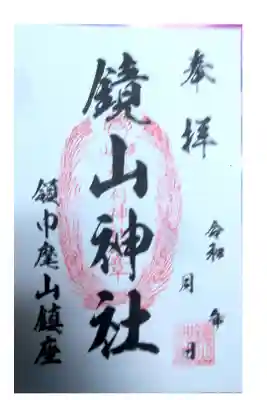 奉拝
鏡山神社
領巾麾山鎮座
令和 年
月 日